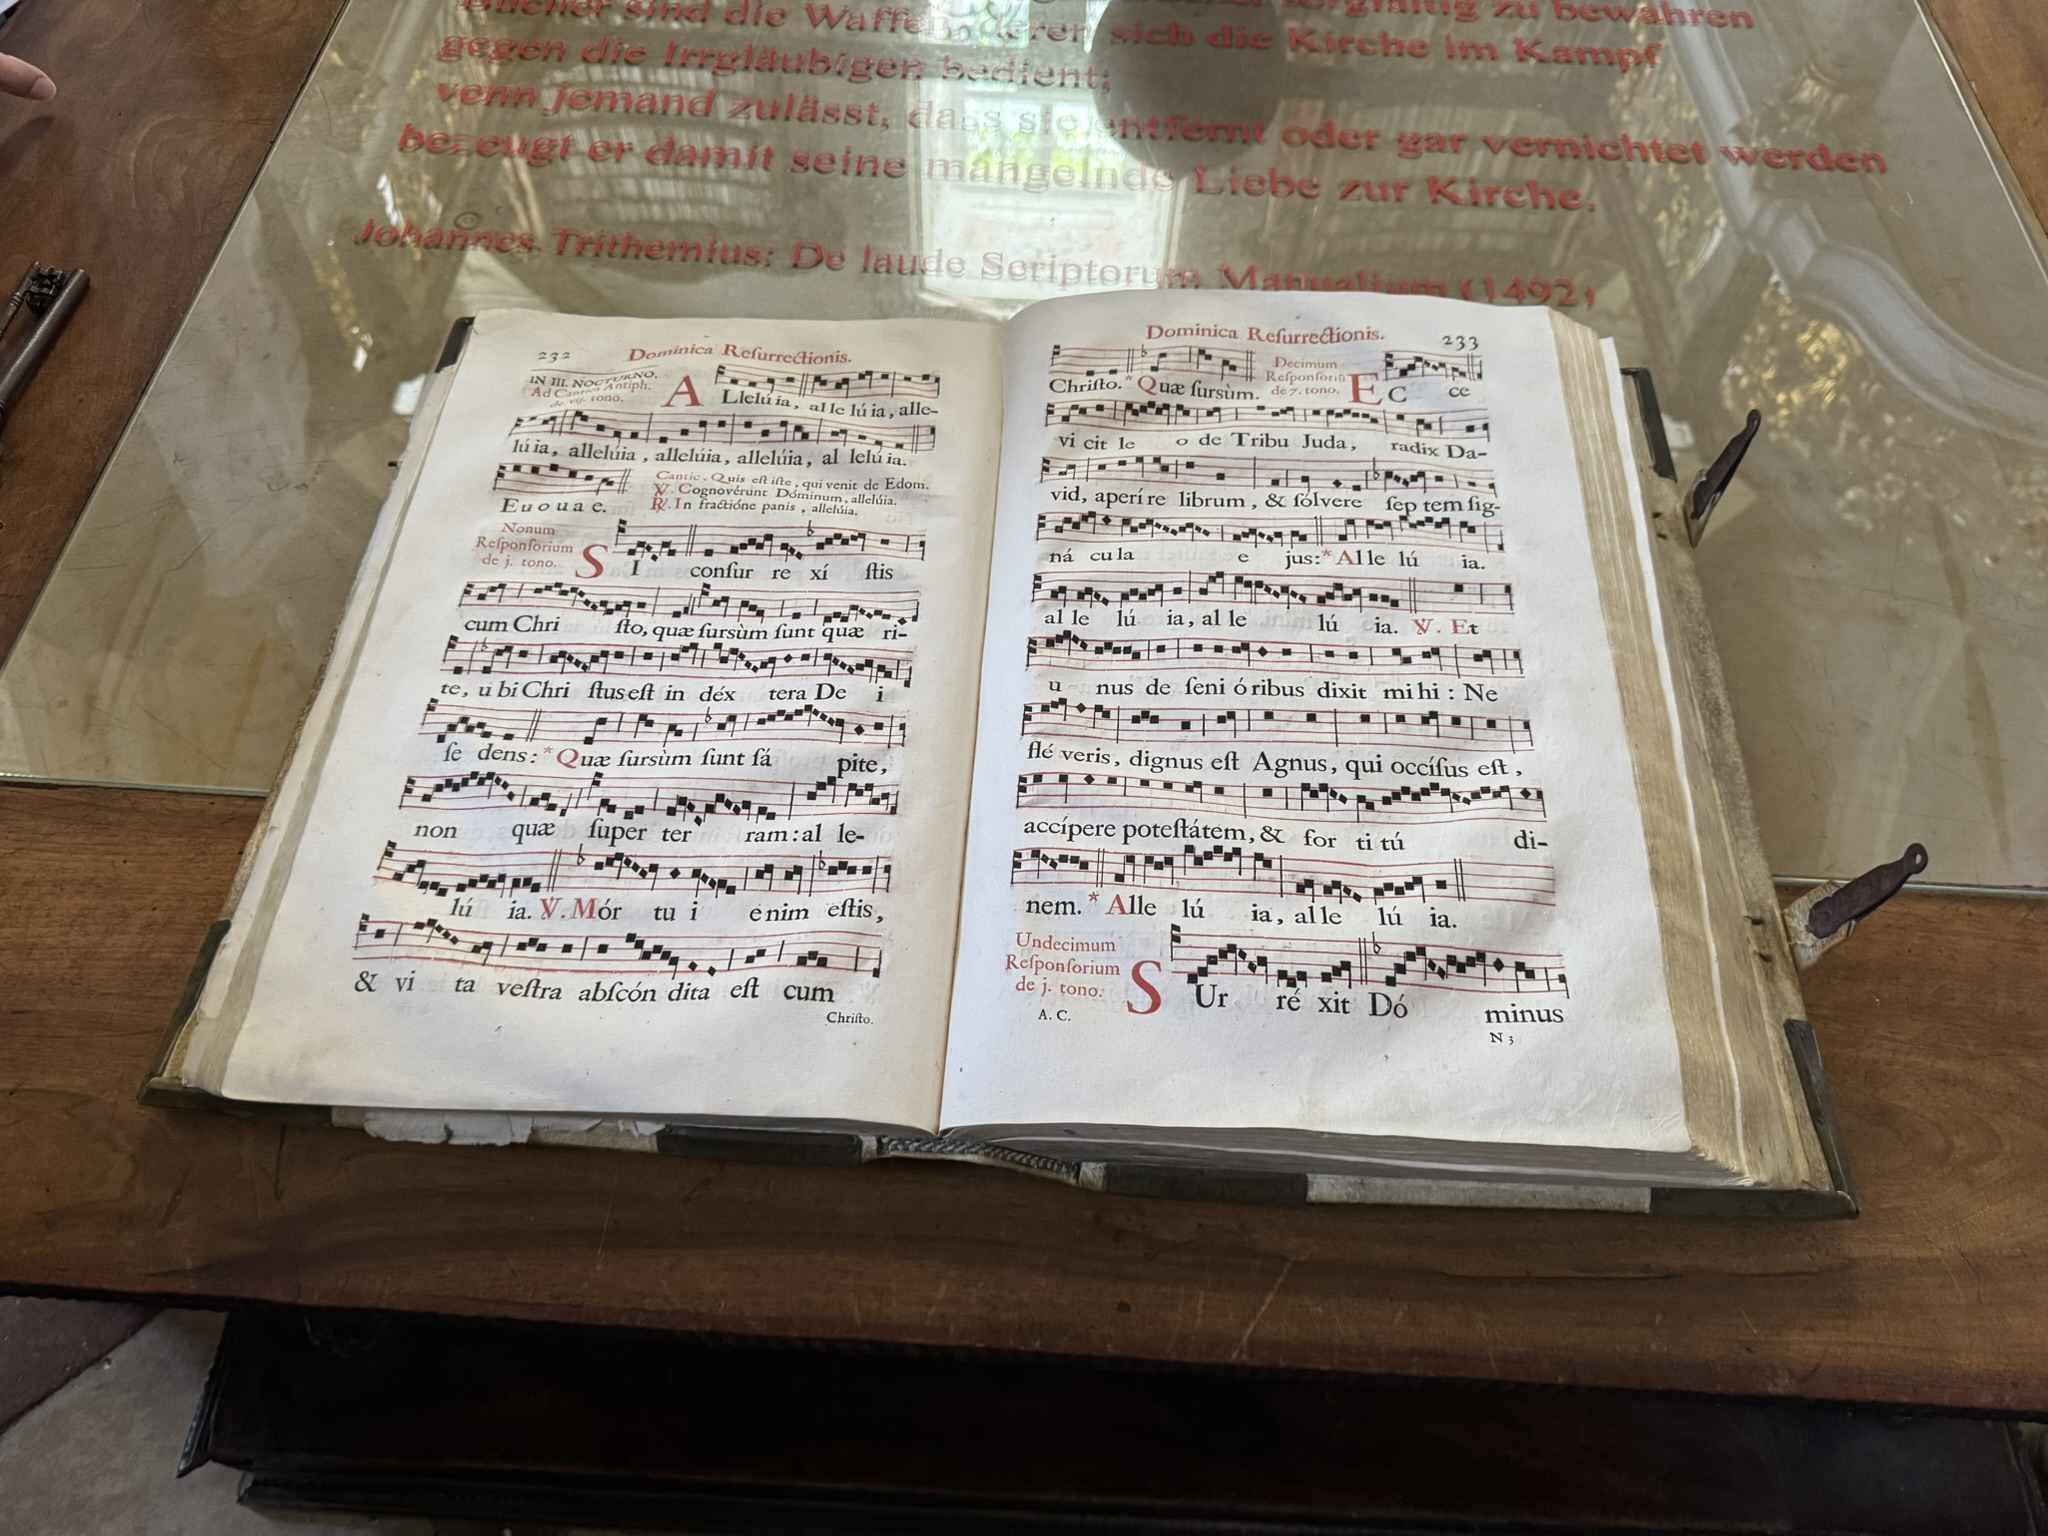 Bücher sind die Waffen, deren sich die Kirche im Kampf
sorgfältig zu bewahren
gegen die Irrgläubigen bedient;
wenn jemand zulässt, dass sie entfernt oder gar vernichtet werden
bezeugt er damit seine mangelnde Liebe zur Kirche.
Johannes Trithemius: De laude Scriptorum Manualium (1492)
232 Dominica Reſurrectionis.
IN III. NOCTURNO.
Ad Cantica Antiph.
de vij. tono.
A Llelú ia, al le lú ia, alle-
lú ia, allelúia, allelúia, allelúia, al lelú ia.
Cantic. Quis eſt iſte, qui venit de Edom.
℣. Cognovérunt Dóminum, allelúia.
E u o u a e. ℟. In fractióne panis, allelúia.
Nonum
Reſponſorium
de j. tono.
S I conſur re xí ſtis
cum Chri ſto, quæ ſursùm ſunt quæ ri-
te, u bi Chri ſtus eſt in déx tera De i
ſe dens: * Quæ ſursùm ſunt ſá pite,
non quæ ſuper ter ram: al le-
lú ia. ℣. Mór tu i enim eſtis,
& vi ta veſtra abſcón dita eſt cum
Chriſto.
Dominica Reſurrectionis. 233
Chriſto. * Quæ ſursùm.
Decimum
Reſponſoriũ
de 7. tono.
E C ce
vi cit le o de Tribu Juda, radix Da-
vid, aperí re librum, & ſólvere ſep tem ſig-
ná cu la e jus: * Al le lú ia.
al le lú ia, al le lú ia. ℣. Et
u nus de ſeni ó ribus dixit mi hi: Ne
flé veris, dignus eſt Agnus, qui occíſus eſt,
accípere poteſtátem, & for ti tú di-
nem. * Alle lú ia, al le lú ia.
Undecimum
Reſponſorium
de j. tono.
S Ur ré xit Dó minus
A. C.
N 3